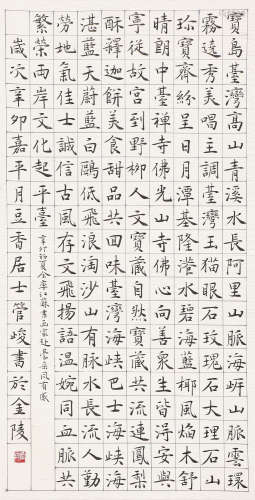 寶島臺灣高山青溪水長阿里山脈海岍山脈雲環
霧遶秀美唱主調臺灣玉貓眼石玫瑰石大理石
珎寶齊紛呈日月潭基隆港水碧海藍椰風焰木舒
晴朗寶臺禪寺佛光山寺佛心向善衆生皆得安與
亭從故宮到野柳人文寶藏流連鳳梨
酥釋迦餅到美食甜品共回味臺灣海峽巴士海峽海
湛藍天蔚藍白鷗低飛浪淘沙山有脈水長流人勤
勞地氣佳士誠信古風存文飛揚語溫婉同血脈共
繁榮兩岸文化起平臺
辛卯初夏余率江蘇書画家赴臺采風有感
歲次辛卯嘉平月豆香居士管峻書於金陵